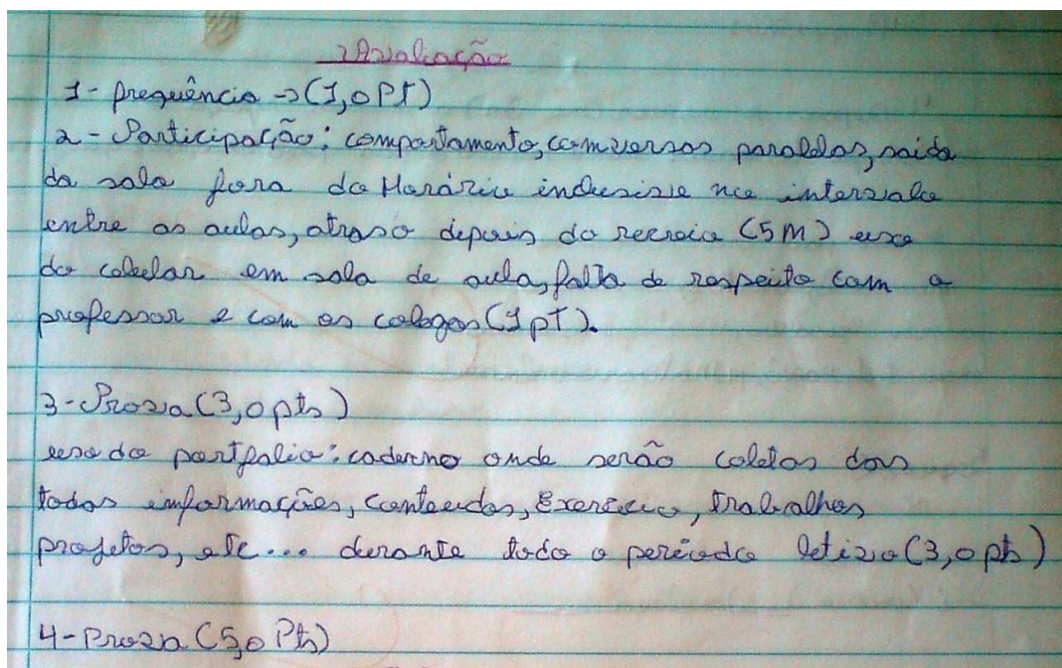 Avaliação
1- frequência → (1,0 PT)
2 - Participação: comportamento, comversas paralelas, saida
da sala fora do Horário inclusive no intervalo
entre as aulas, atraso depois do recreio (5M) uso
do celular em sala de aula, falta de respeito com o
professor e com os colegas (1 pT).
3 - Prova (3,0 pts)
uso do portfolio: caderno onde serão coletas dos
todas informações, conteudos, Exercicio, trabalhos
projetos, etc... durante todo o periodo letivo (3,0 pts)
4 - Prova (5,0 Pts)